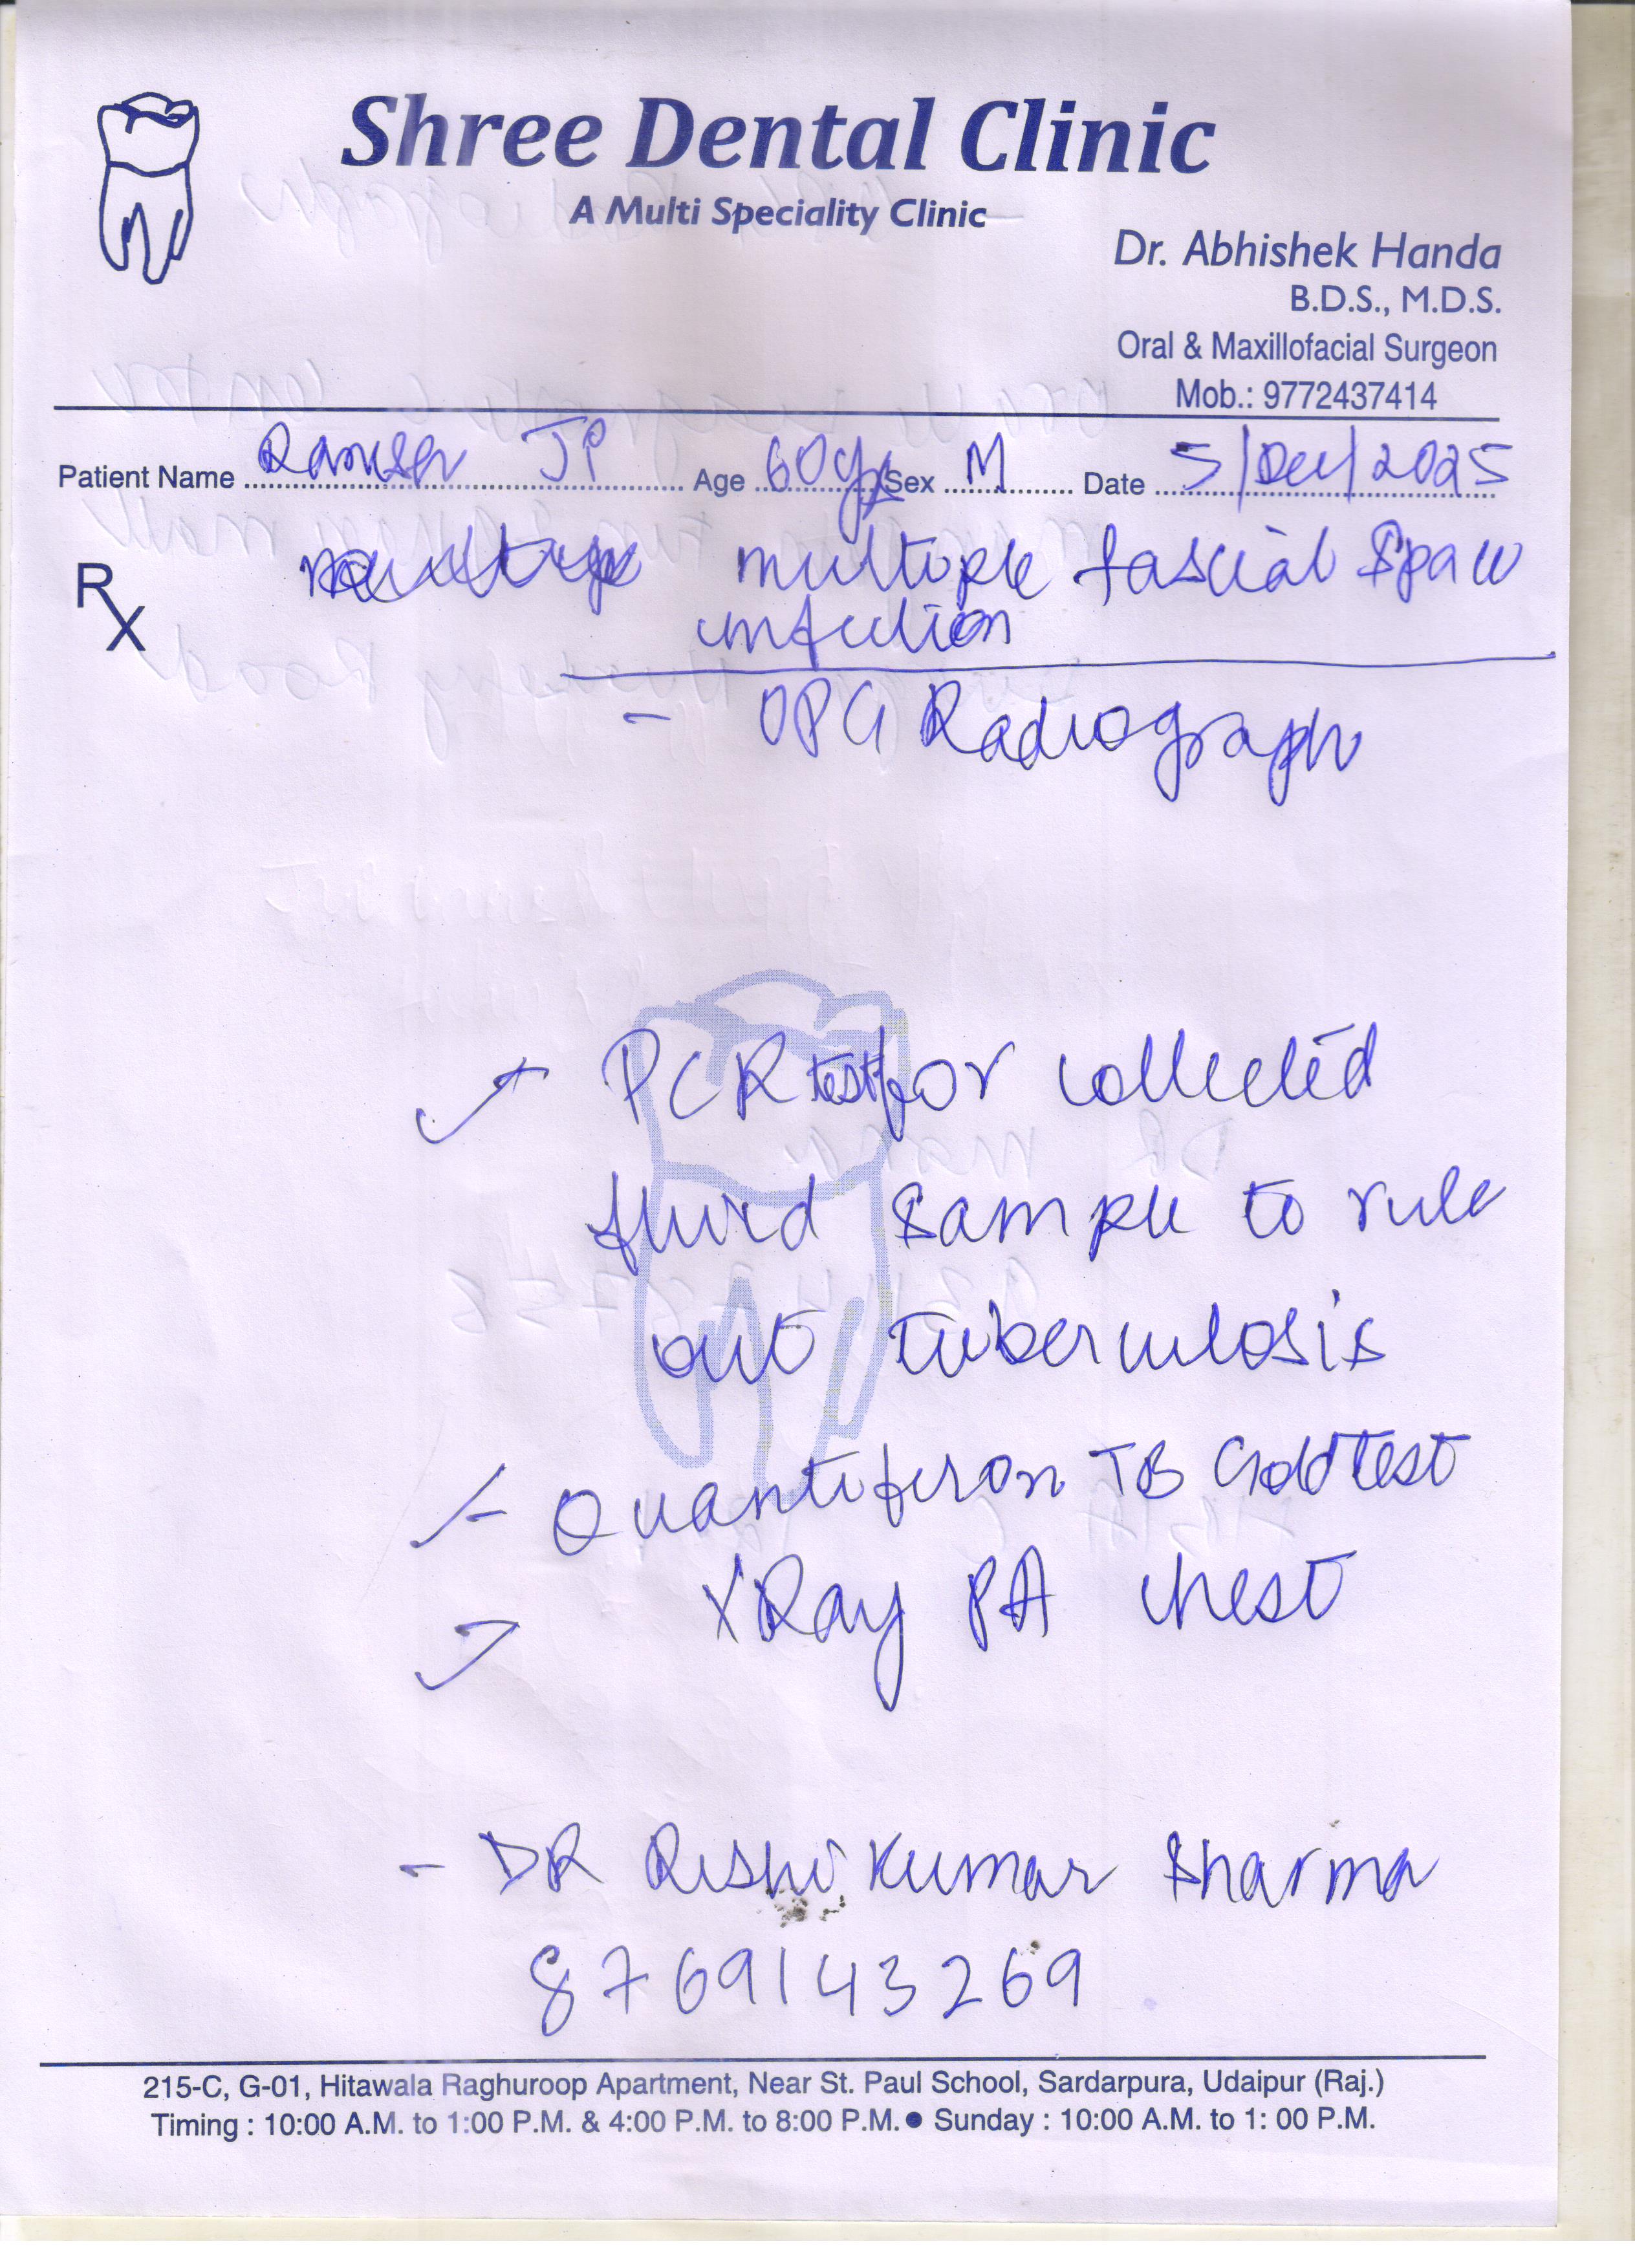 Shree Dental Clinic
A Multi Speciality Clinic
Dr. Abhishek Handa
B.D.S., M.D.S.
Oral & Maxillofacial Surgeon
Mob.: 9772437414
Patient Name Ramesh JP Age 60yrs Sex M Date 5/Dec/2025
Rx multiple fascial space
infection
- OPG Radiograph
- PCR test for collected
fluid sample to rule
out tuberculosis
- Quantiferon TB Gold test
XRay PA chest
- DR Rishi Kumar Sharma
8769143269
215-C, G-01, Hitawala Raghuroop Apartment, Near St. Paul School, Sardarpura, Udaipur (Raj.)
Timing : 10:00 A.M. to 1:00 P.M. & 4:00 P.M. to 8:00 P.M. ● Sunday : 10:00 A.M. to 1: 00 P.M.